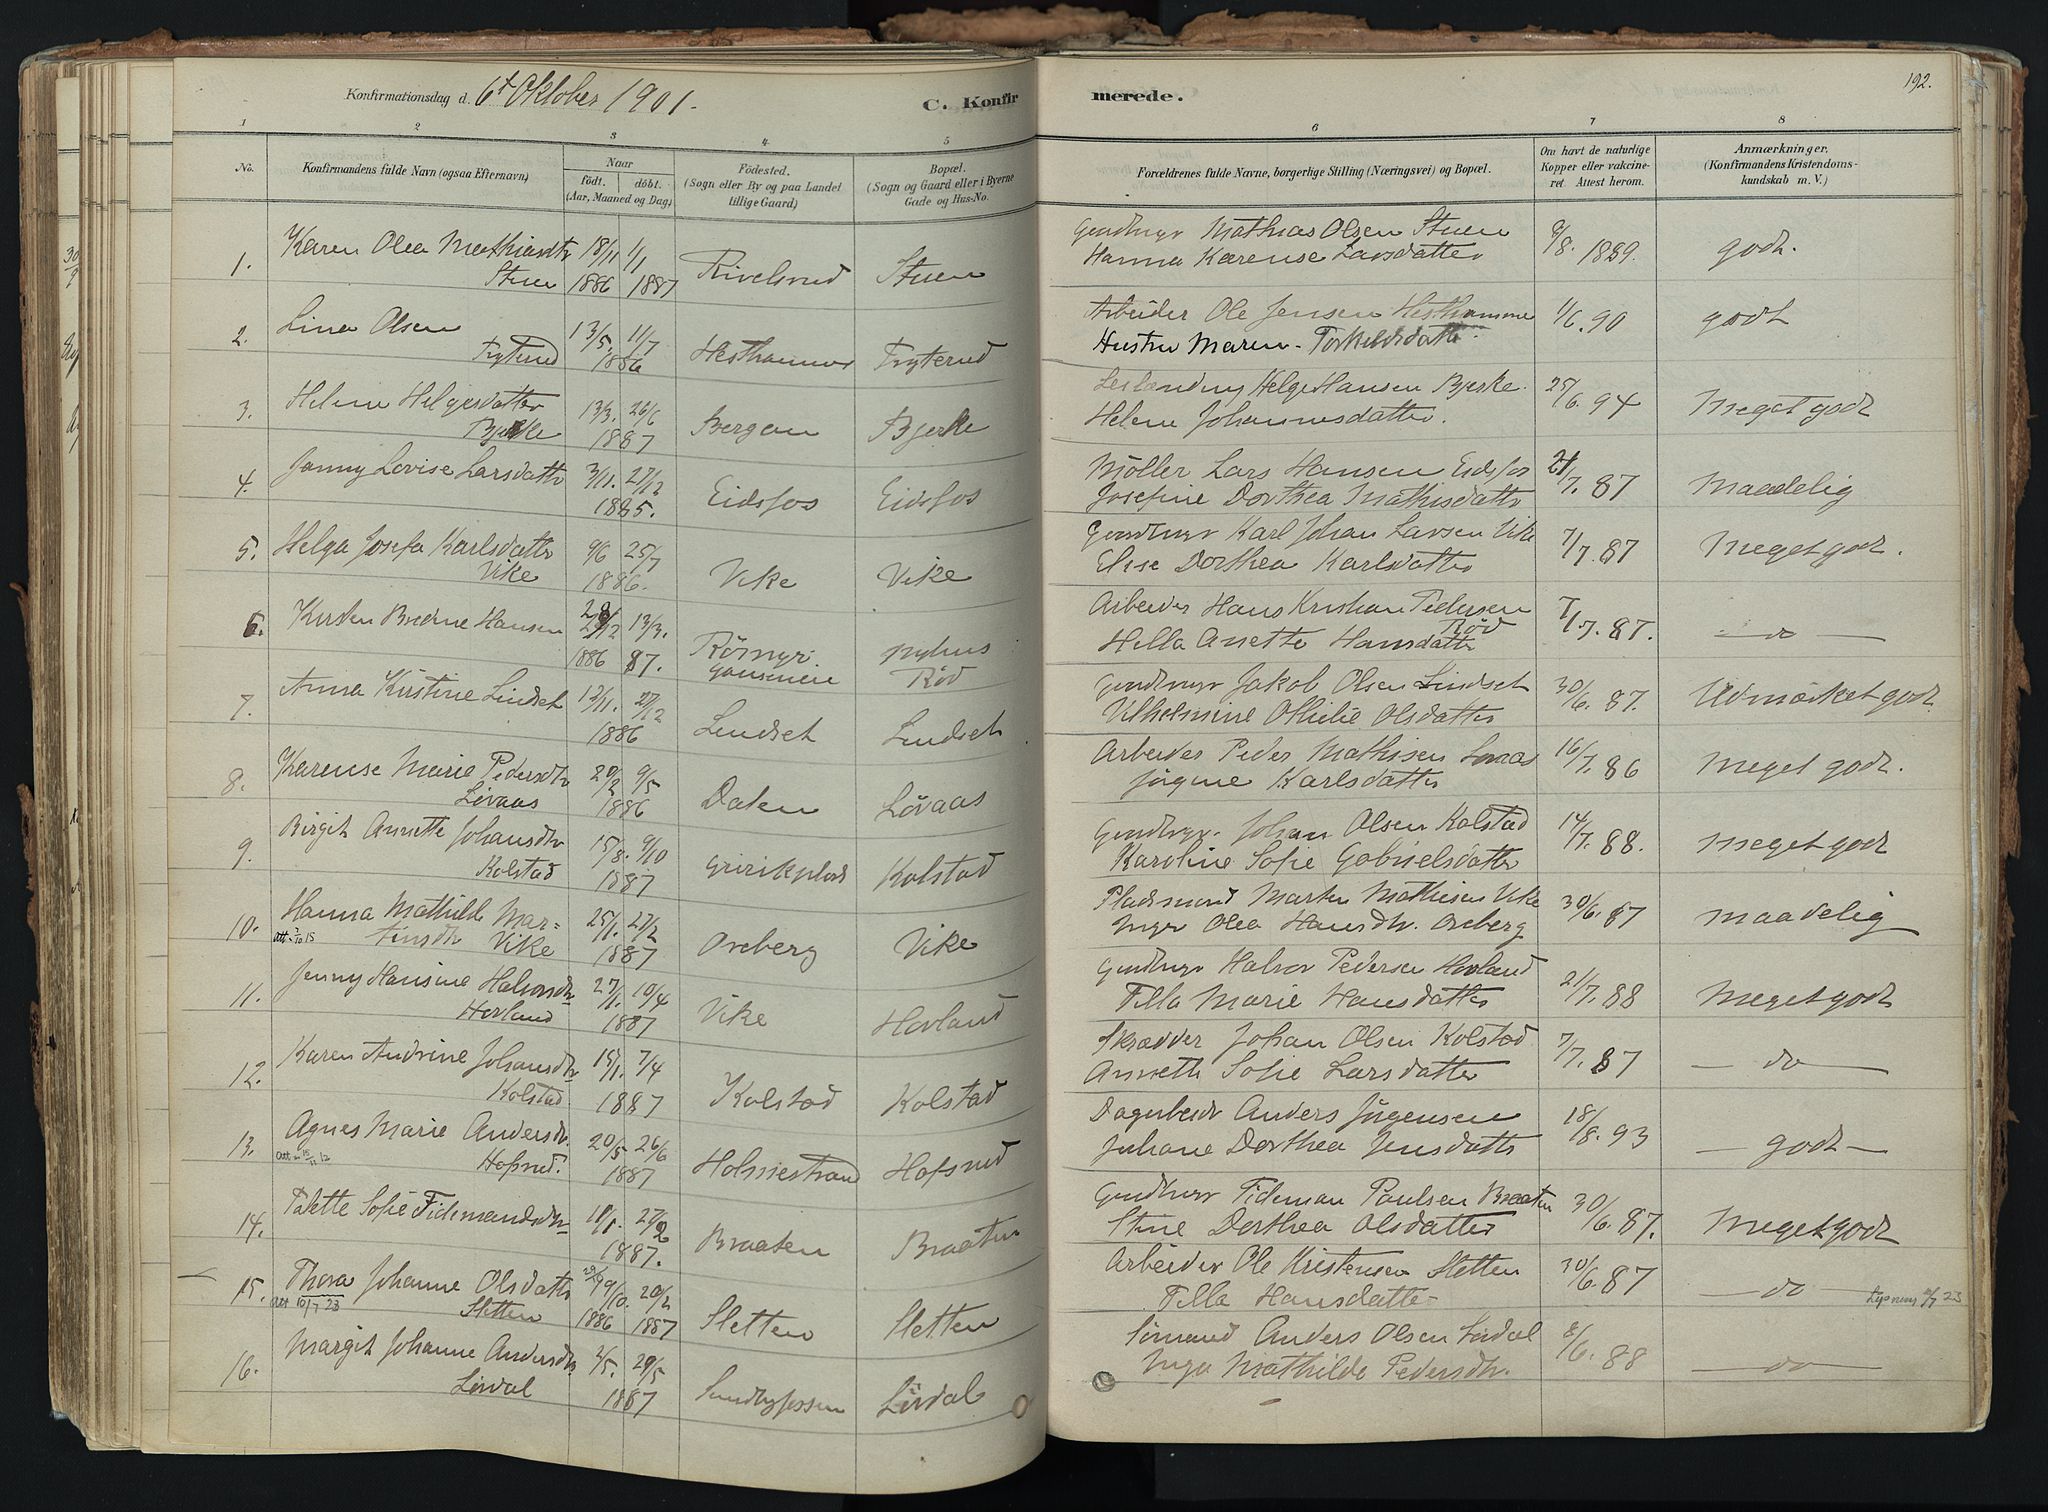 192.
Konfirmationsdag d. 6t Oktober 1901.
C. Konfir
merede.
1 2 3 4 5 6 7 8
No. Konfirmandens fulde Navn (ogsaa Efternavn) Naar født. døbt. (Aar, Maaned og Dag) Fødested. (Sogn eller By og paa Landet tillige Gaard) Bopæl. (Sogn og Gaard eller i Byerne Gade og Hus-No.
Forældrenes fulde Navne, borgerlige Stilling (Næringsvei) og Bopæl. Om havt de naturlige Kopper eller vakcineret. Attest herom. Anmærkninger. (Konfirmandens Kristendomskundskab m. V.)
1. Karen Olea Mathiasdtr 18/11 1/1
Stuen 1886 1887 Rivelsrud Stuen
Mathias Olsen Stuen
Hanna Karense Larsdatter 1889. godt.
2. Lina Olsen 13/5. 11/7
Fryterud 1886 Hesthammer Fryterud
Arbeider Ole Jensen Hesthammer
Hustru Maren Torkeldsdatter 1/6. 90 godt
3. Helene Helgesdatter 13/3. 26/6
Bjerke 1887 Bergan Bjerke
Leilænding Helge Hansen Bjerke
Helene Johannesdatter. 25/6. 94 Meget godt
4. Jenny Lovise Larsdatter 3/11. 27/12
1885. Eidsfos Eidsfos
Møller Lars Hansen Eidsfos
Josefine Dorthea Mathisdatter 21/7. 87 Maadelig
5. Helga Josefa Karlsdatter 9/6 25/7
Vike 1886. Vike Vike
Karl Johan Larsen Vike
Elise Dorthea Karlsdatter 7/7. 87 Meget godt.
6. Kirsten Bredine Hansen 13/3.
1886 87. nyhus
Rød
Arbeider Hans Kristian Pedersen
Rød
Hella Anette Hansdatter 7/7. 87. — do —
7. Anna Kristine Lindset 12/11. 27/12
1886 Lindset Lindset
Jakob Olsen Lindset
Vilhelmine Othilie Olsdatter 30/6. 87. Udmærket godt.
8. Karense Marie Pedersdtr 20/2 9/5
Løvaas 1886 Dalen Løvaas
Arbeider Peder Mathisen Løvaas
Jørgine Karlsdatter 16/7. 86 Meget godt.
9. Birgit Annette Johansdtr 15/8. 9/10
Kolstad 1887 Kolstad
Johan Olsen Kolstad
Karoline Sofie Gabrielsdatter 14/7. 88. Meget godt
10. Hanna Mathilde Mar- 25/1. 27/2
tinsdtr Vike 1887 Oreberg Vike
Pladsmand Martin Mathisen Vike
Inger Olea Hansdtr. Oreberg 30/6. 87 maadelig
11. Jenny Hansine Halvorsdtr 27/1. 10/4
Hovland 1887 Vike Hovland
Halvor Pedersen Hovland
Tilla Marie Hansdatter 21/7. 88 Meget godt
12. Karen Andrine Johansdtr 15/1. 7/4
Kolstad 1887 Kolstad Kolstad
Skrædder Johan Olsen Kolstad
Anneth Sofie Larsdatter 7/7. 87 — do —
13. Agnes Marie Andersdr. 20/5 26/6
Hofsrud. 1887 Holmestrand Hofsrud
Dagarbeidr Anders Jørgensen
Juliane Dorthea Jensdatter 18/8. 93 — godt —
14. Palette Sofie Tidemandsdtr 27/2
1887. Braaten Braaten
Tideman Paulsen Braaten
Stine Dorthea Olsdatter 30/6. 87. Meget godt
15. Thora Johanne Olsdatter 20/2
Att 10/7 23 Sletten 1886 1887 Sletten Sletten
Arbeider Ole Kristensen Sletten
Tilla Hansdatter 30/6. 87 — do — Lysning 23
16. Margit Johanne Andersdtr 2/5. 29/5
Lørdal 1887 Sundbyfossen Lørdal
Sømand Anders Olsen Lørdal
Inga Mathilde Pedersdtr. 8/6. 88 — do —